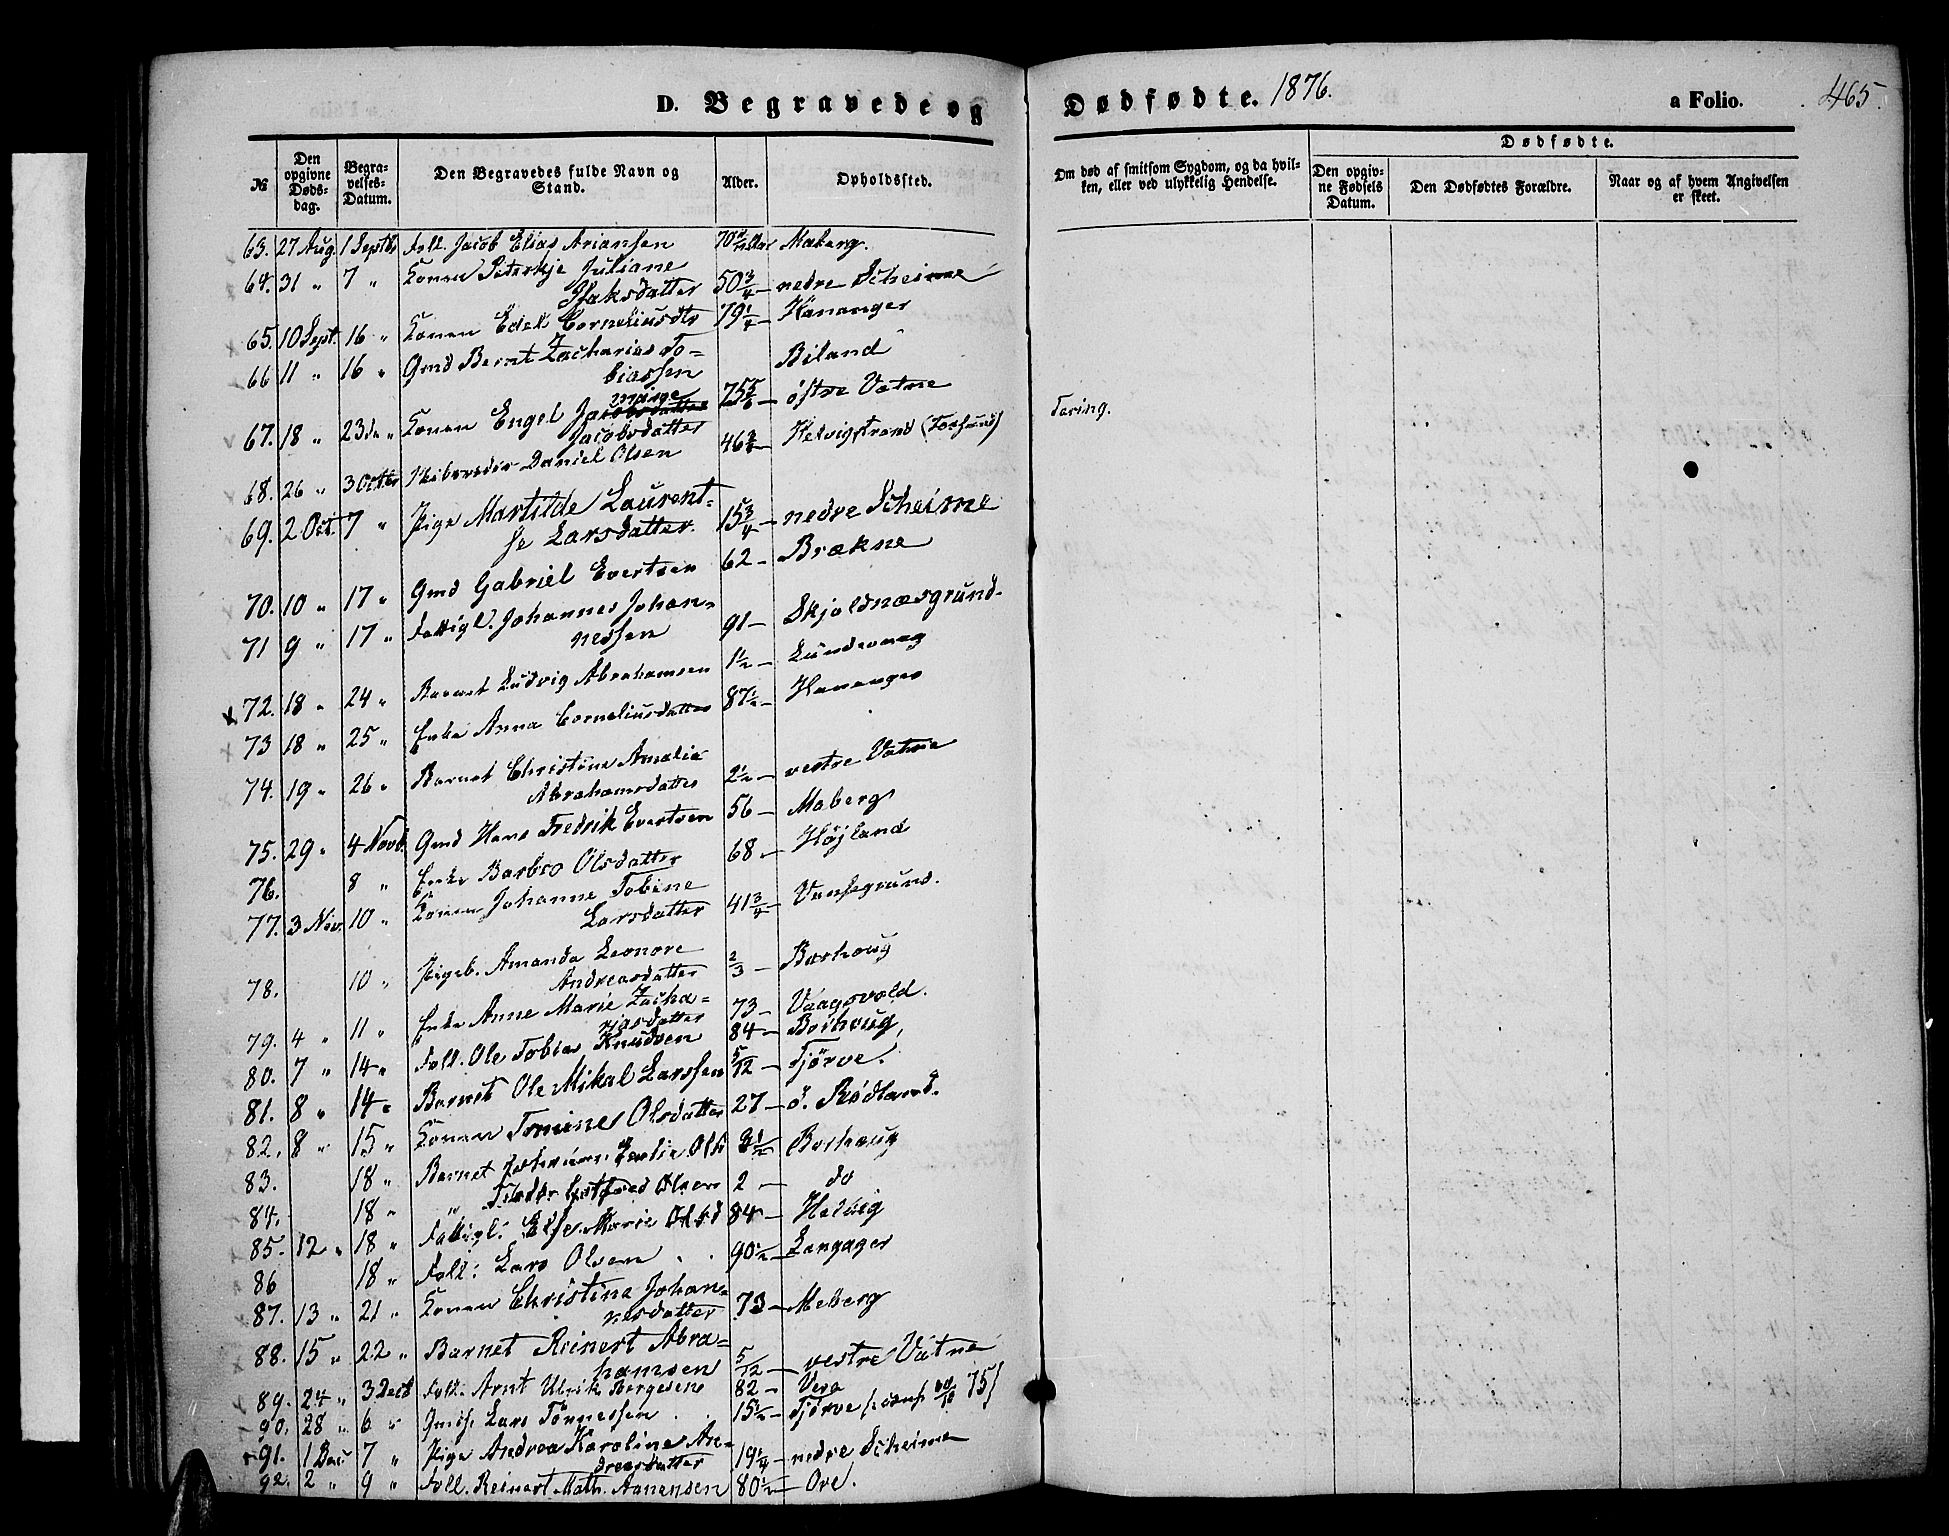 D. Begravede og Dødfødte. 1876. a Folio. 465.
№
Den opgivne Dødsdag.
Begravelses-Datum.
Den Begravedes fulde Navn og Stand.
Alder.
Opholdssted.
Om død af smitsom Sygdom, og da hvilken, eller ved ulykkelig Hendelse.
Dødfødte.
Den opgivne Fødsels Datum.
Den Dødfødtes Forældre.
Naar og af hvem Angivelsen er skeet.
63. 27 Aug. 1 Septbr Fold. Jacob Elias Ariansen 70 Maberg.
64. 31 " 7 " Konen Peterkje Juliane
Isaksdatter 50 3/4 — nedre Scheime
65. 10 Sept. 16 " Konen Edel Corneliusdtr 79 1/4 — Hananger
66 11 " 16 " Gmd Bernt Zacharias To=
biassen 75 5/6 — Biland
67. 18 " 23 " Konen Engel Jacobsdatter
Jacobsdatter 46 3/4 — østre Vatne
68. 26 " 3 Octbr Daniel Olsen Helvigstrand (Farsund) Tæring.
69. 2 Oct. 7 " Pige Martilde Laurent=
se Larsdatter 15 3/4 — nedre Scheime
70. 10 " 17 " Gmd Gabriel Evertsen 62 — Brækne
71 9 " 17 " Fattigl. Johannes Johan=
nessen 91 — Skjoldnæsgrund.
72. 18 " 24 " Barnet Ludvig Abrahamsen 1 1/2 — Lundevaag
73 18 " 25 " Enke Anna Corneliusdatter 87 1/2 — Hananger
74. 19 " 26 " Barnet Christine Amalie
Abrahamsdatter 2 1/2 — vestre Vatne
75. 29 " 4 Novb. Gmd Hans Fredrik Evertsen 56 — Maberg
76. 8 " Enke Barbro Olsdatter 68 — Højland
77. 3 Nov. 10 " Konen Johanne Tobine
Larsdatter 41 3/4 — Vansegrund.
78. 10 " Pigeb. Amanda Leonore
Andreasdatter 2/3 — Borhoug
79. 4 " 11 " Enke Anne Marie Zacha=
riasdatter 73 — Vaagsvold.
80. 7 " 14 " Fold. Ole Tobias Knudsen 84 — Borhoug,
81. 8 " 14 " Barnet Ole Mikal Larssen 5/12 — Tjørve.
82. 8 " 15 " Konen Tomine Olsdatter 27 — ø. Rødland.
83. 18 " Barnet Emilie Olsd 3 1/2 — Borhaug
84. 18 " " Gotfred Olsen 2 — do
85. 12 " 18 " Fattigl: Else Marie Olsd 84 — Helvig
86 18 " Fold: Lars Olsen 90 1/2 — Langager
87. 13 " 21 " Konen Christine Johan=
nesdatter 73 — Meberg
88. 15 " 22 " Barnet Reinert Abra=
hamsen 5/12 — vestre Vatne
89. 24 " 3 Decb Fold. Arnt Ulrik Børgesen 82 — Vere
90. 28 " 6 " Lars Tønnessen 15 1/2 — Tjørve (conf 75)
91. 1 Dec 7 " Pige Andrea Karoline An=
dreasdatter 19 1/4 — nedre Scheime
92. 2 " 9 " Fold. Reinert Math. Aanensen 80 1/2 — Ore.